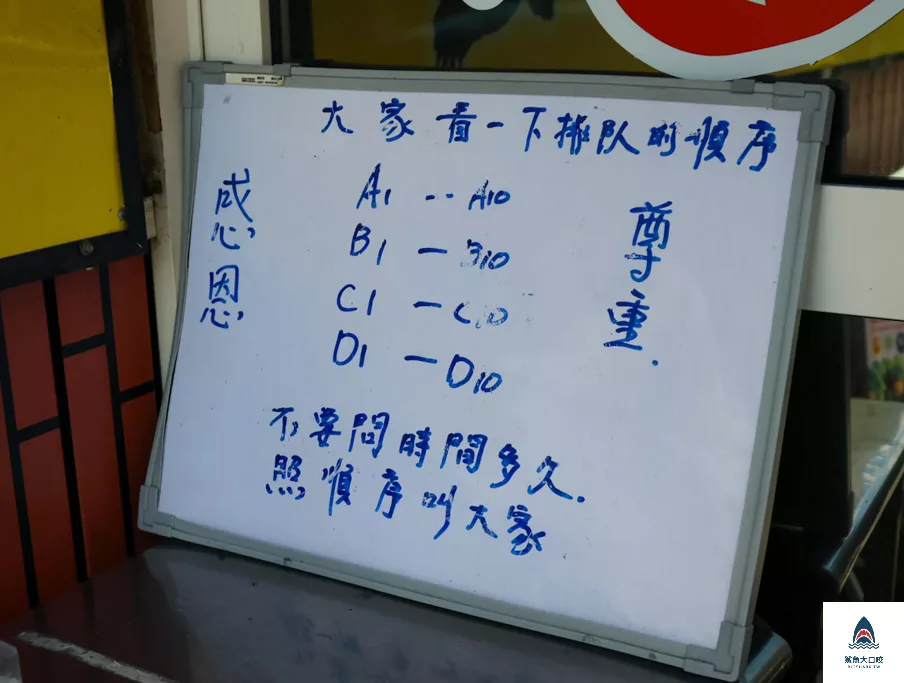 大家看一下排队的順序
感恩
A1 -- A10
B1 — B10
C1 — C10
D1 — D10
尊重.
不要問時間多久.
照順序叫大家
鯊魚大口咬